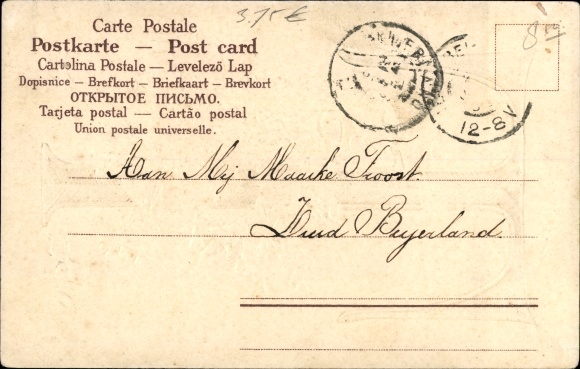 3.75 €
87
Carte Postale
Postkarte — Post card
Cartolina Postale — Levelező Lap
Dopisnice — Brefkort — Briefkaart — Brevkort
ОТКРЫТОЕ ПИСЬМО.
Tarjeta postal — Cartão postal
Union postale universelle.
12-8V
Aan Mej Maaike Troost
Zuid Beyerland.